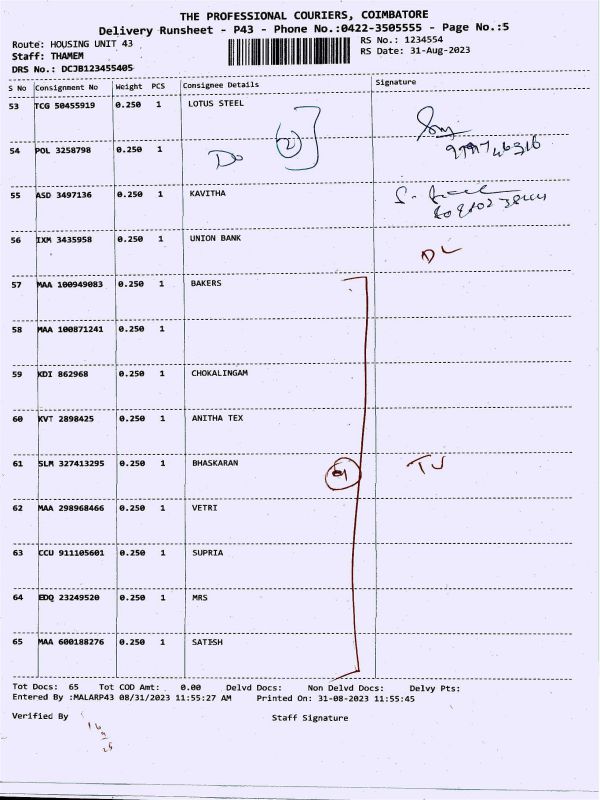 THE PROFESSIONAL COURIERS, COIMBATORE
Delivery Runsheet - P43 - Phone No.:0422-3505555 - Page No.:5
Route: HOUSING UNIT 43 RS No.: 1234554
Staff: THAMEM RS Date: 31-Aug-2023
DRS No.: DCJB123455405
S No Consignment No Weight PCS Consignee Details Signature
53 TCG 50455919 0.250 1 LOTUS STEEL
54 POL 3258798 0.250 1
Do 2
55 ASD 3497136 0.250 1 KAVITHA
56 IXM 3435958 0.250 1 UNION BANK
DL
57 MAA 100949083 0.250 1 BAKERS
58 MAA 100871241 0.250 1
59 KDI 862968 0.250 1 CHOKALINGAM
60 KVT 2898425 0.250 1 ANITHA TEX
61 SLM 327413295 0.250 1 BHASKARAN
62 MAA 298968466 0.250 1 VETRI
63 CCU 911105601 0.250 1 SUPRIA
64 EDQ 23249520 0.250 1 MRS
65 MAA 600188276 0.250 1 SATISH
Tot Docs: 65 Tot COD Amt: 0.00 Delvd Docs: Non Delvd Docs: Delvy Pts:
Entered By :MALARP43 08/31/2023 11:55:27 AM Printed On: 31-08-2023 11:55:45
Verified By Staff Signature